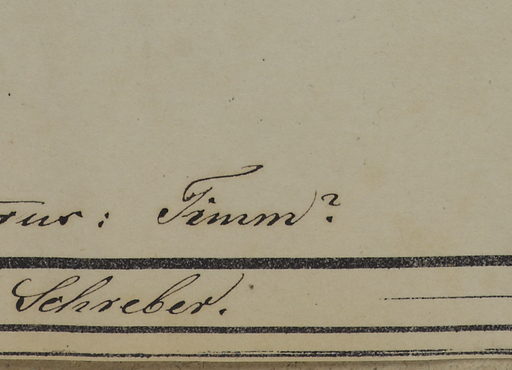 rus: Timm?
Schreber.